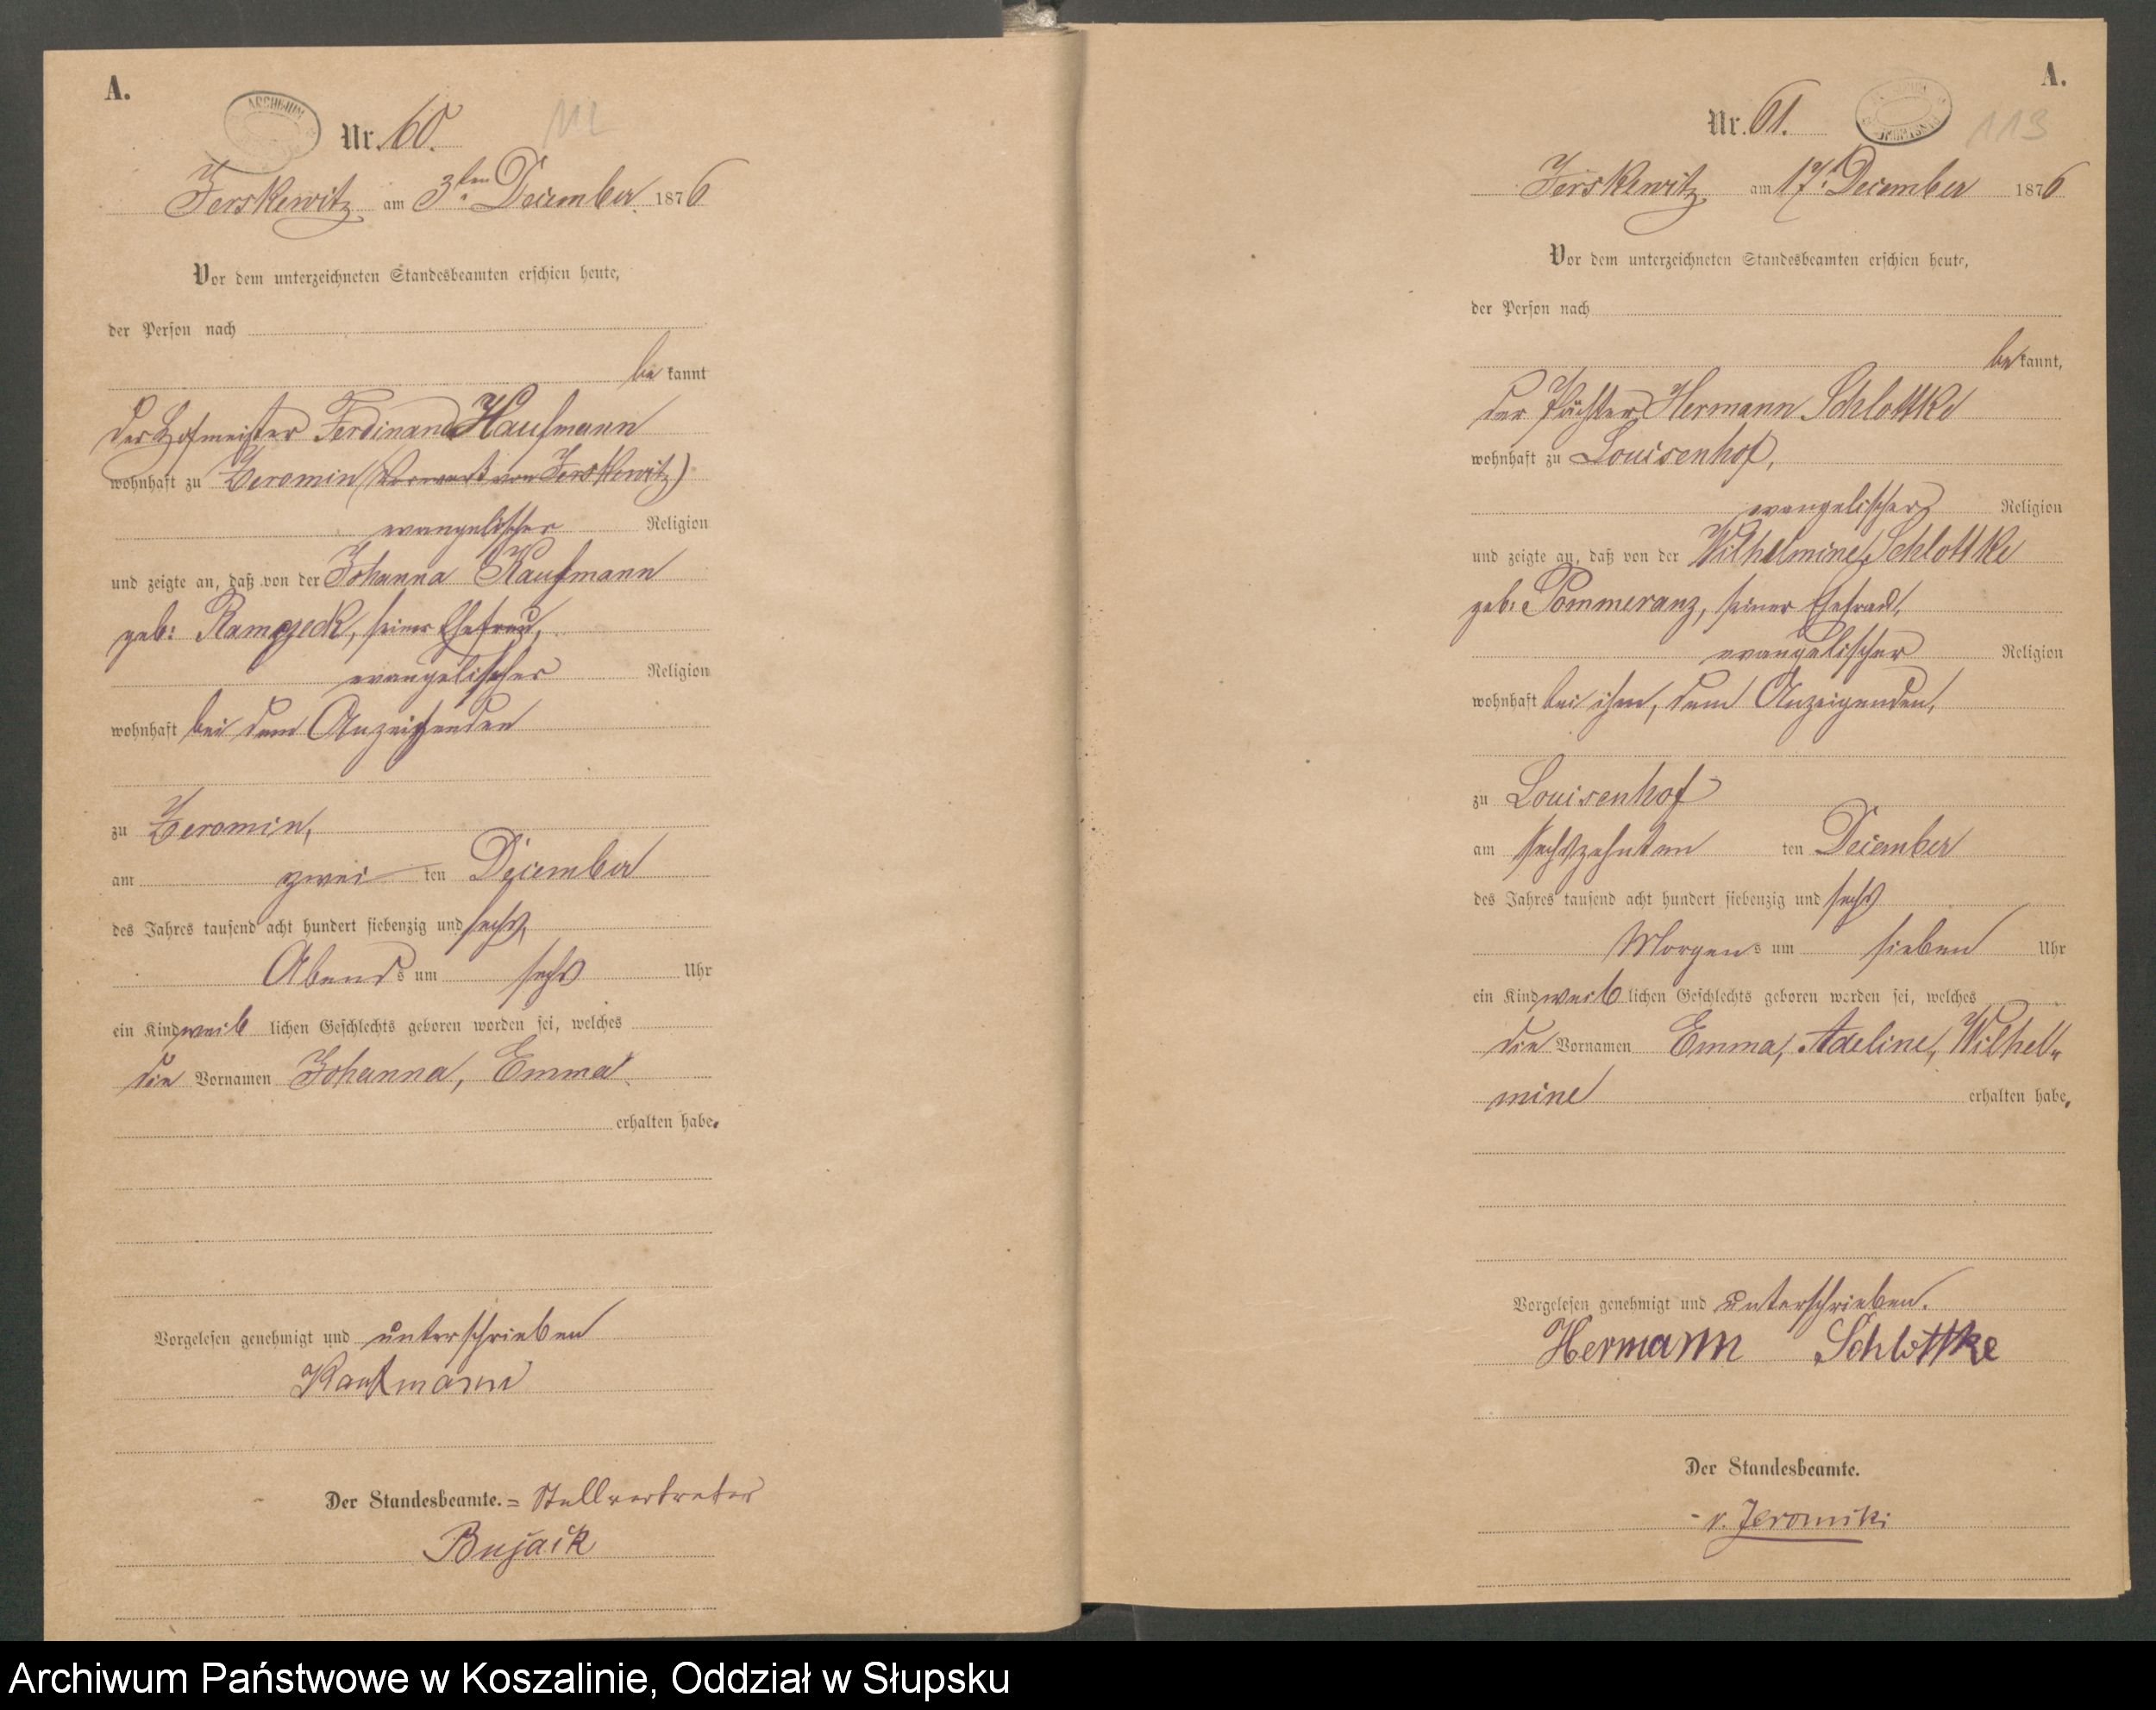 A.
ARCHIWUM
Nr. 60.
112
Jerskewitz am 3ten December 1876
Vor dem unterzeichneten Standesbeamten erschien heute,
der Person nach
be kannt
der Hofmeister Ferdinand Kaufmann
wohnhaft zu Zeromin (Vorwerk von Jerskewitz)
evangelischer Religion
und zeigte an, daß von der Johanna Kaufmann
geb: seiner Ehefrau,
evangelischer Religion
wohnhaft bei dem Anzeigenden
zu Zeromin,
am zwei ten December
des Jahres tausend acht hundert siebenzig und sechs,
Abend s um sechs Uhr
ein Kind weib lichen Geschlechts geboren worden sei, welches
die Vornamen Johanna, Emma
erhalten habe.
Vorgelesen genehmigt und unterschrieben
Kaufmann
Der Standesbeamte. = Stellvertreter
Bujack
A.
Nr. 61.
113
Jerskewitz, am 17. December 1876
Vor dem unterzeichneten Standesbeamten erschien heute,
der Person nach
be kannt,
der Pächter Hermann Schlottke
wohnhaft zu Louisenhof,
evangelischer Religion
und zeigte an, daß von der Wilhelmine Schlottke
geb: Pommeranz, seiner Ehefrau,
evangelischer Religion
wohnhaft bei ihm, dem Anzeigenden,
zu Louisenhof
am sechszehnten ten December
des Jahres tausend acht hundert siebenzig und sechs
Morgen s um sieben Uhr
ein Kind weib lichen Geschlechts geboren worden sei, welches
die Vornamen Emma, Adeline, Wilhel„
mine erhalten habe.
Vorgelesen genehmigt und unterschrieben.
Hermann Schlottke
Der Standesbeamte.
Archiwum Państwowe w Koszalinie, Oddział w Słupsku